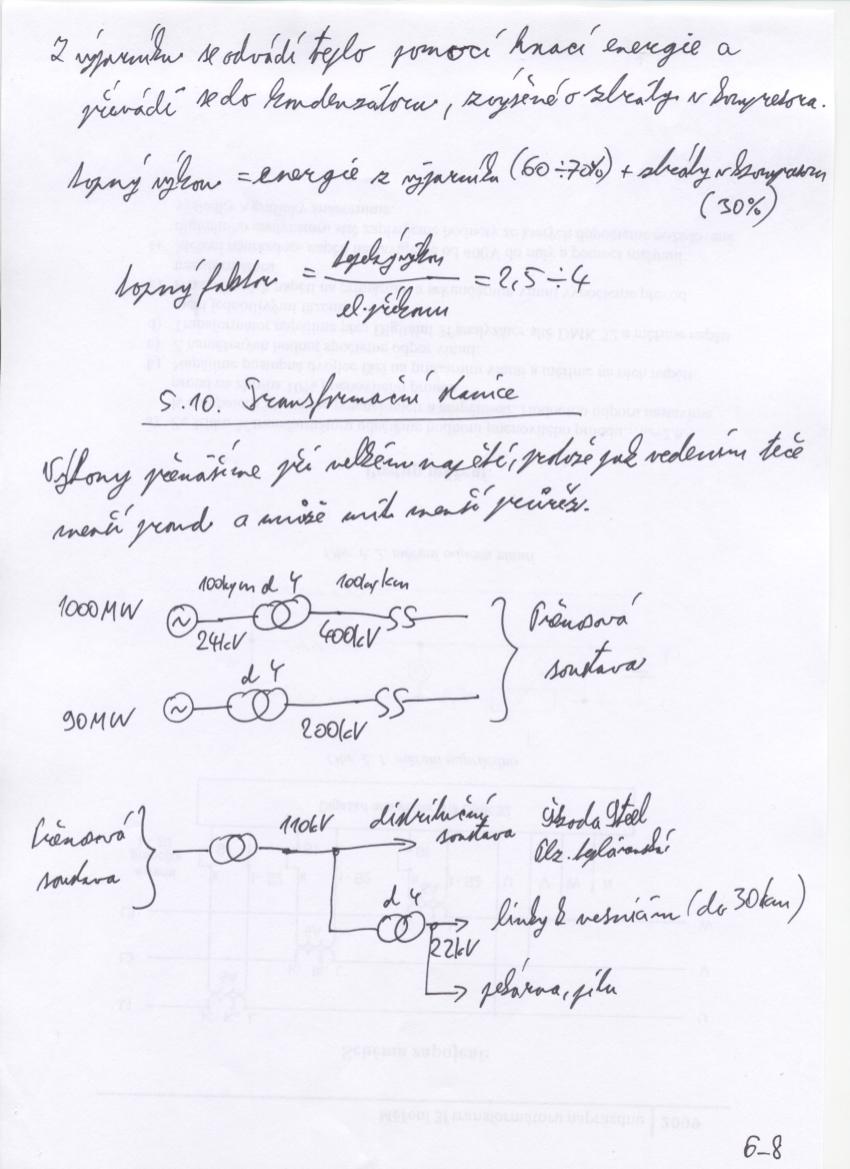 Z výparníku se odvádí teplo pomocí hnací energie a
převádí se do kondenzátoru, zvýšené o ztráty v kompresoru.
topný výkon = energie z výparníku (60÷70%) + ztráty v kompresoru
(30%)
topný faktor = tepelný výkon / el. příkonu = 2,5÷4
5.10. Transformační stanice
Výkony přenášíme při velkém napětí, protože pak vedením teče
menší proud a může mít menší průřez.
d Y
1000MW 24kV 400kV
Přenosová
soustava
d Y
90MW 200kV
Přenosová
soustava
110kV distribuční
soustava
Škoda Steel
Plz. teplárenská
d Y
22kV linky k vesnicím (do 30km)
pekárna, pila
6-8